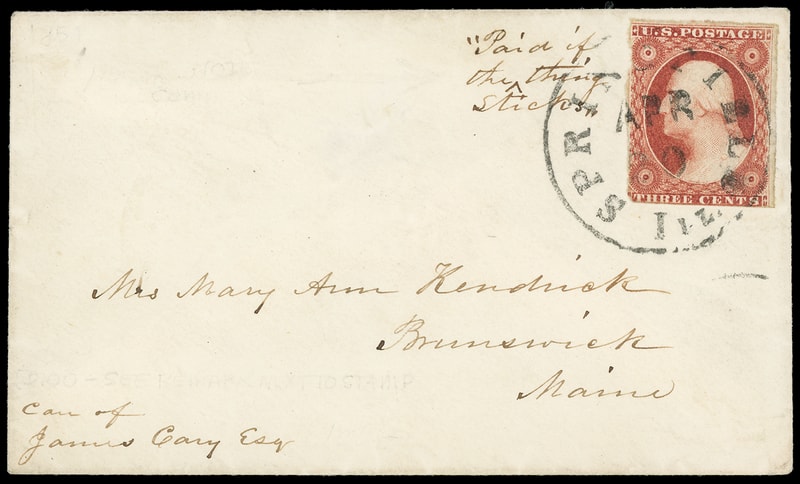 "Paid if
the thing
Sticks"
U.S. POSTAGE
THREE CENTS
SPRINGFIELD
APR
Mrs Mary Ann Kendrick
Brunswick
Maine
care of
James Cary Esq